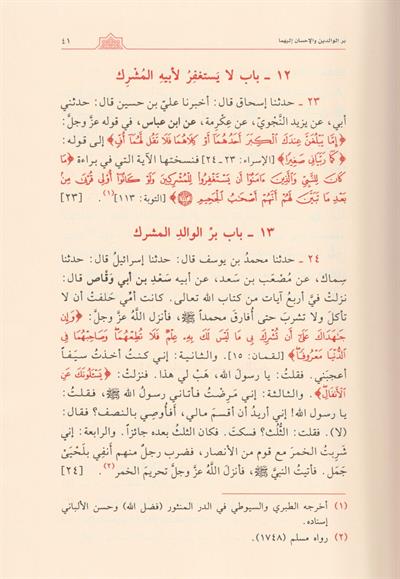 بر الوالدين والإحسان إليهما
٤١
١٢ ـ باب لا يَستغفِرُ لأبيهِ المُشْرِك
٢٣ ـ حدثنا إسحاق قال: أخبرنا عليّ بن حسين قال: حدثني
أبي، عن يزيد النَّحْوِيّ، عن عِكْرِمة، عن ابن عباس، في قوله عزَّ وجلَّ:
﴿إِمَّا يَبْلُغَنَّ عِندَكَ ٱلْكِبَرَ أَحَدُهُمَآ أَوْ كِلَاهُمَا فَلَا تَقُل لَّهُمَآ أُفٍّ﴾ إلى قوله:
﴿كَمَا رَبَّيَانِي صَغِيرًا﴾ [الإسراء: ٢٣ ـ ٢٤] فنسختها الآية التي في براءة ﴿مَا
كَانَ لِلنَّبِيِّ وَٱلَّذِينَ ءَامَنُوٓا۟ أَن يَسْتَغْفِرُوا۟ لِلْمُشْرِكِينَ وَلَوْ كَانُوٓا۟ أُو۟لِي قُرْبَىٰ مِنۢ
بَعْدِ مَا تَبَيَّنَ لَهُمْ أَنَّهُمْ أَصْحَٰبُ ٱلْجَحِيمِ﴾ [التوبة: ١١٣](١). [٢٣]
١٣ ـ باب برّ الوالدِ المشرك
٢٤ ـ حدثنا محمد بن يوسف قال: حدثنا إسرائيلُ قال: حدثنا
سِماك، عن مُصْعَب بن سَعد، عن أبيه سَعْدِ بن أبي وَقّاص قال:
نزلتْ فيَّ أربعُ آيات من كتاب الله تعالى. كانت أمِّي حَلفتْ أن لا
تأكلَ ولا تشربَ حتى أُفارقَ محمداً ﷺ، فأنزل اللَّهُ عزَّ وجلَّ: ﴿وَإِن
جَٰهَدَاكَ عَلَىٰٓ أَن تُشْرِكَ بِي مَا لَيْسَ لَكَ بِهِۦ عِلْمٌ فَلَا تُطِعْهُمَا وَصَاحِبْهُمَا فِي
ٱلدُّنْيَا مَعْرُوفًا﴾ [لقمان: ١٥]. والثانية: إني كنتُ أخذتُ سَيفاً
أعجَبَني. فقلتُ: يا رسول الله، هَبْ لي هذا. فنزلتْ: ﴿يَسْـَٔلُونَكَ عَنِ
ٱلْأَنفَالِ﴾. والثالثة: إني مَرِضْتُ فأتاني رسولُ اللهِ ﷺ، فقلتُ:
يا رسول الله! إني أريدُ أن أقسمَ مالي، أفأُوصِي بالنصف؟ فقال:
(لا). فقلت: الثُّلُث؟ فسكتَ. فكان الثلثُ بعده جائزاً. والرابعة: إني
شَرِبتُ الخمرَ مع قوم من الأنصار، فضرب رجلٌ منهم أنفِي بلَحْيَيْ
جَمَل. فأتيتُ النبيَّ ﷺ، فأنزل اللَّهُ عزَّ وجلَّ تحريمَ الخمر(٢). [٢٤]
(١) أخرجه الطبري والسيوطي في الدر المنثور (فضل الله) وحسن الألباني
إسناده.
(٢) رواه مسلم (١٧٤٨).